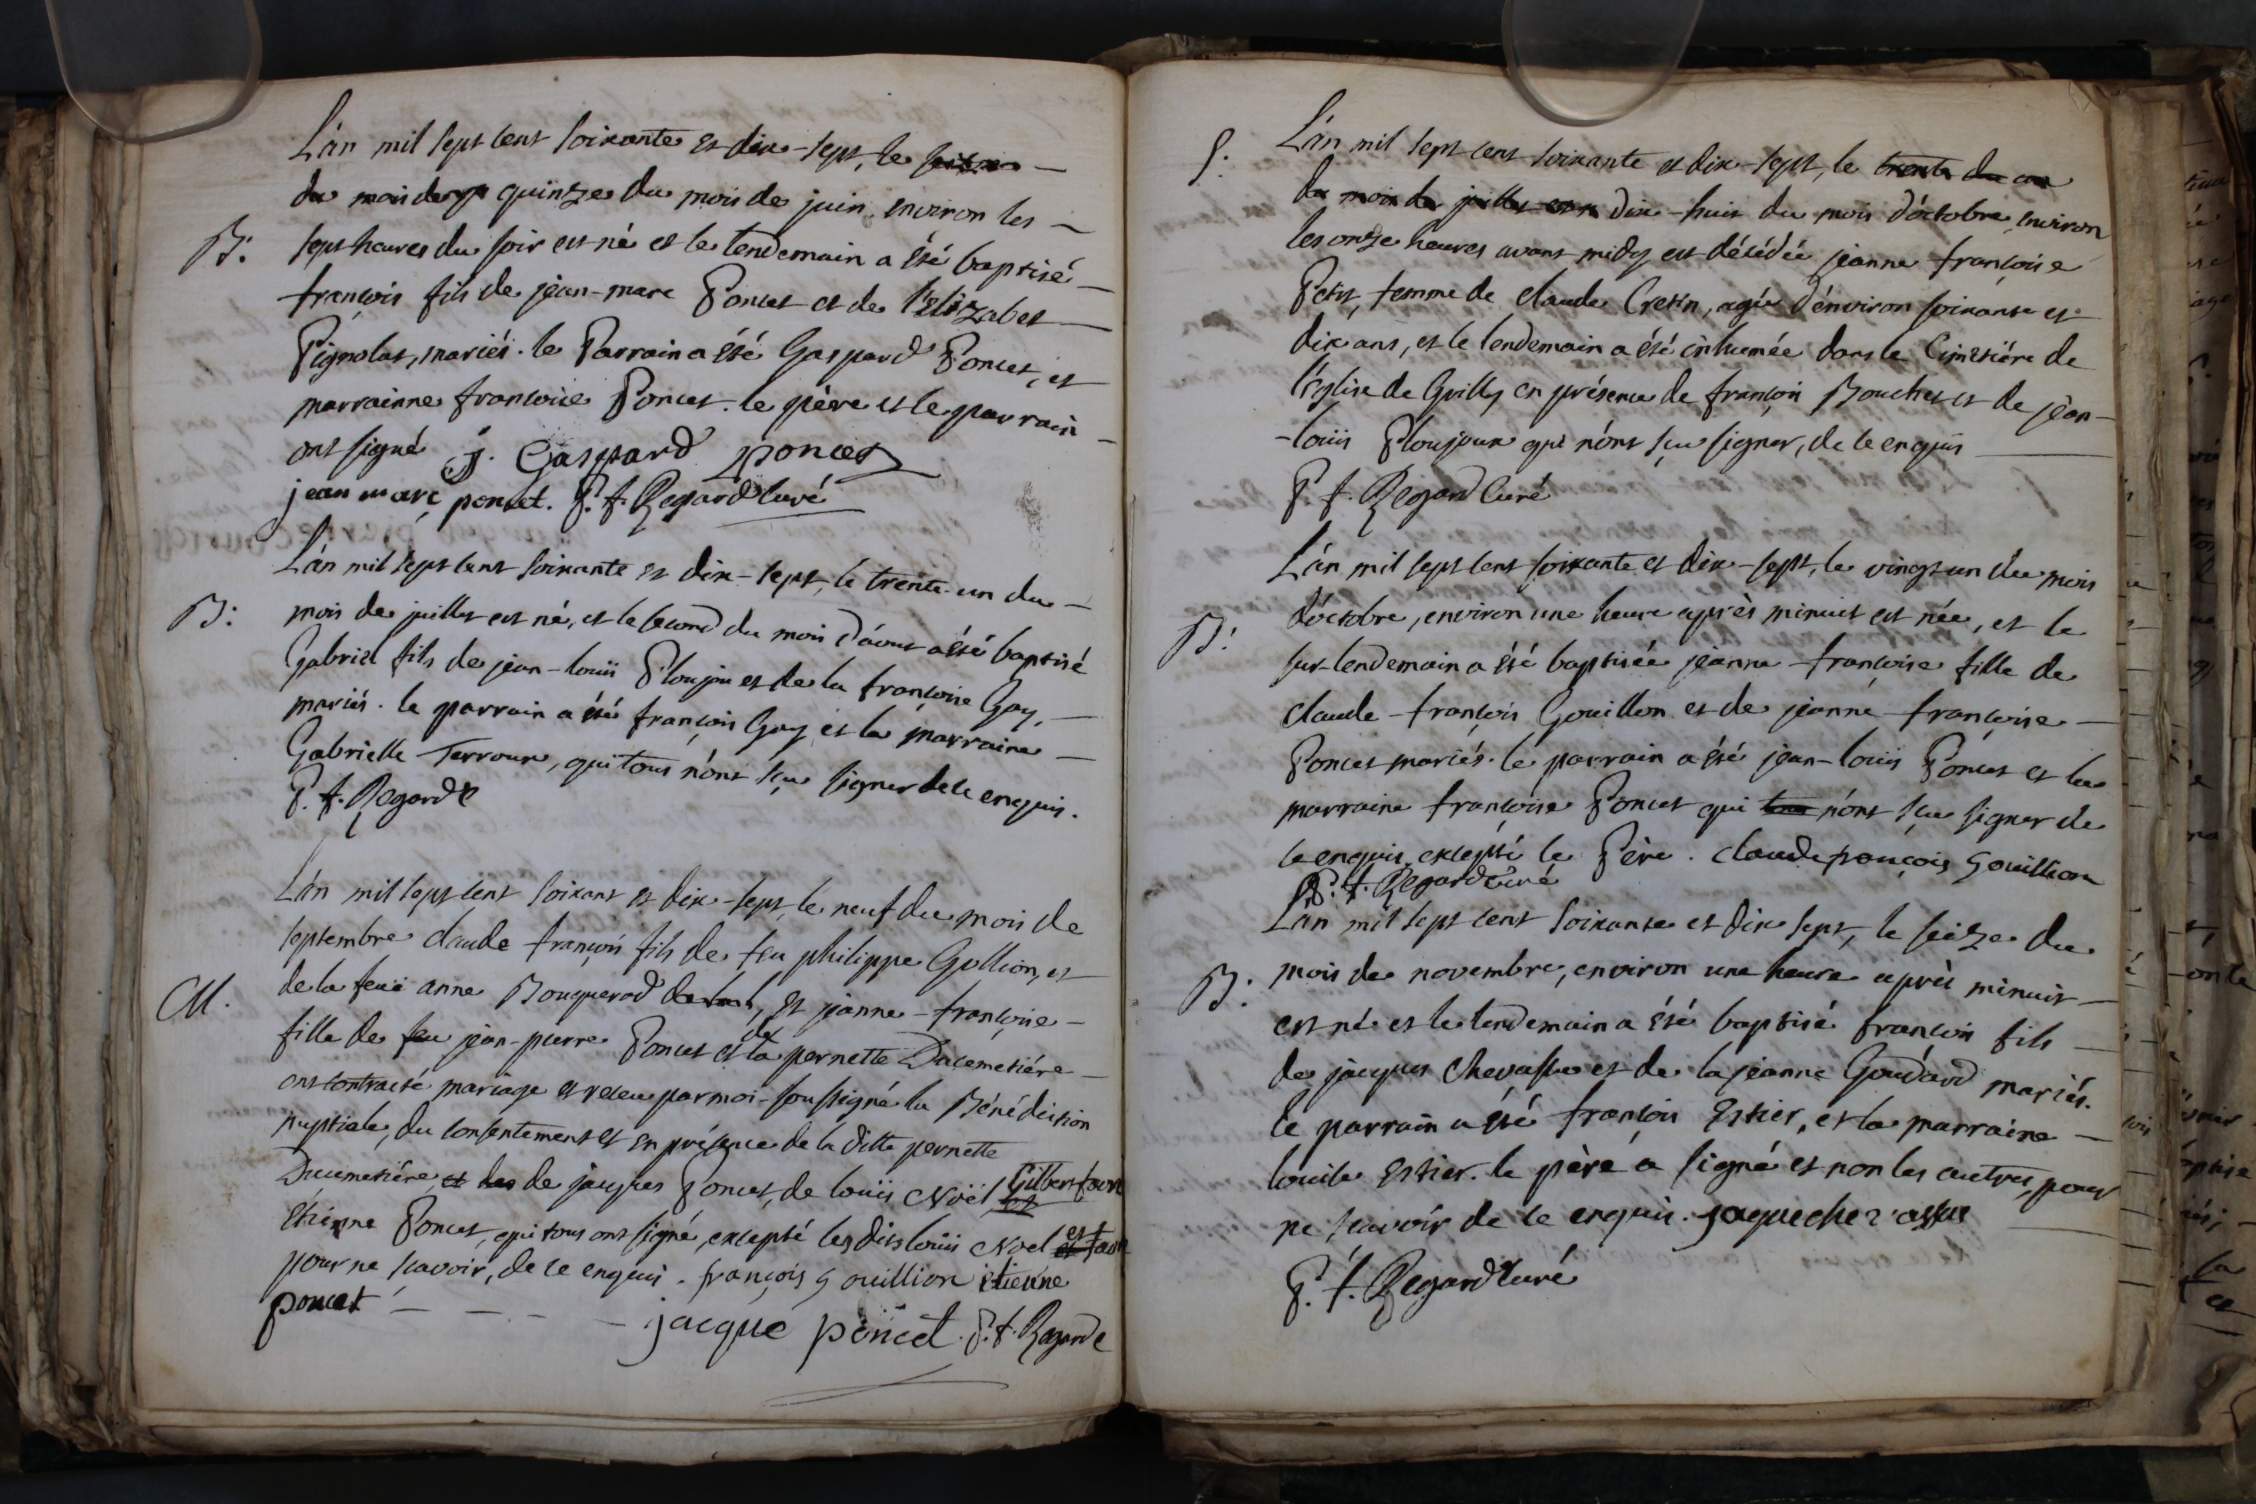 L'án mil sept cent soixante et dix-sept, le seize
du mois de quinze du mois de juin environ les
B. sept heures du soir est né et le lendemain a été baptisé
françois fils de jean-marc Poncet et de l'elizabet
Pignolat, mariés. le Parrain a été Gaspard Poncet, et
marrainne françoise Poncet. le père et le parrain
ont signé j. Gaspard poncet
jean marc poncet. P. f. Regard Curé
L'án mil sept cent soixante et dix-sept, le trente-un du
B. mois de juillet est né, et le second du mois d'áout a été baptisé
Gabriel fils de jean-louis Ploujou et de la françoise Gay,
mariés. le parrain a été françois Gay et la marraine
Gabrielle Terroux, qui tous n'ont sçu signer de ce enquis.
P. f. Regard C
L'án mil sept cent soixant et dix-sept, le neuf du mois de
septembre claude françois fils de feu philippe Gollion, et
M. de la feüe anne Bouquerod, et jeanne-françoise
fille de feu jean-pierre Poncet et de la pernette Ducemetiére
ont contracté mariage et receu par moi-soussigné la Bénédiction
nuptiale, du consentement et en présence de la ditte pernette
Ducemetiére et des de jacques Poncet, de louïs Noël, Gilbert favre
étienne Poncet, qui tous ont signé, excepté les dits louïs Noel et favre
pour ne scavoir, de ce enquis. françois gouillion étienne
poncet jacque poncet. P. f. Regard C
S. L'án mil sept cent soixante et dix-sept, le trente du
du mois de juillet dix-huit du mois d'óctobre, environ
les onze heures avant midy est décédée jeanne françoise
Petit, femme de claude Cretin, agée d'énviron soixante et
dix ans, et le lendemain a été inhumée dans le Cimetiére de
l'église de Grilly en présence de françois Bouchet et de jean-
-louïs Ploujoux qui n'ónt sçu signer, de ce enquis
P. f. Regard Curé
L'án mil sept cent soixante et dix-sept, le vingt-un du mois
d'óctobre, environ une heure après minuit est née, et le
B. sur-lendemain a été baptisée jeanne-françoise fille de
claude-françois Gouillon et de jeanne françoise
Poncet mariés. le parrain a été jean-louïs Poncet et la
marraine françoise Poncet qui tous n'ónt sçu signer de
ce enquis, excepté le Père. claude françois gouillion
P. f. Regard Curé
L'án mil sept cent soixante et dix sept, le seize du
B. mois de novembre, environ une heure après minuit
est né et le lendemain a été baptisé françois fils
de jacques Chevassu et de la jeanne Goudard mariés.
le parrain a été françois Estier, et la marraine
louise Estier. le père a signé et non les autres, pour
ne scavoir de ce enquis. jaque chevassus
P. f. Regard Curé